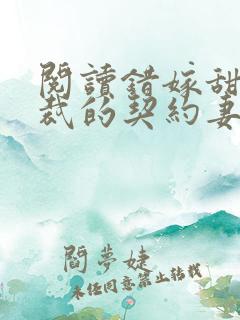 閱讀錯嫁甜
裁的契約妻
閻夢婕
未經同意禁止轉載